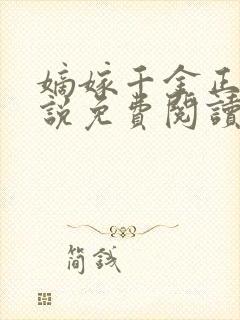 嫡嫁千金正
説免費閱讀
简钱